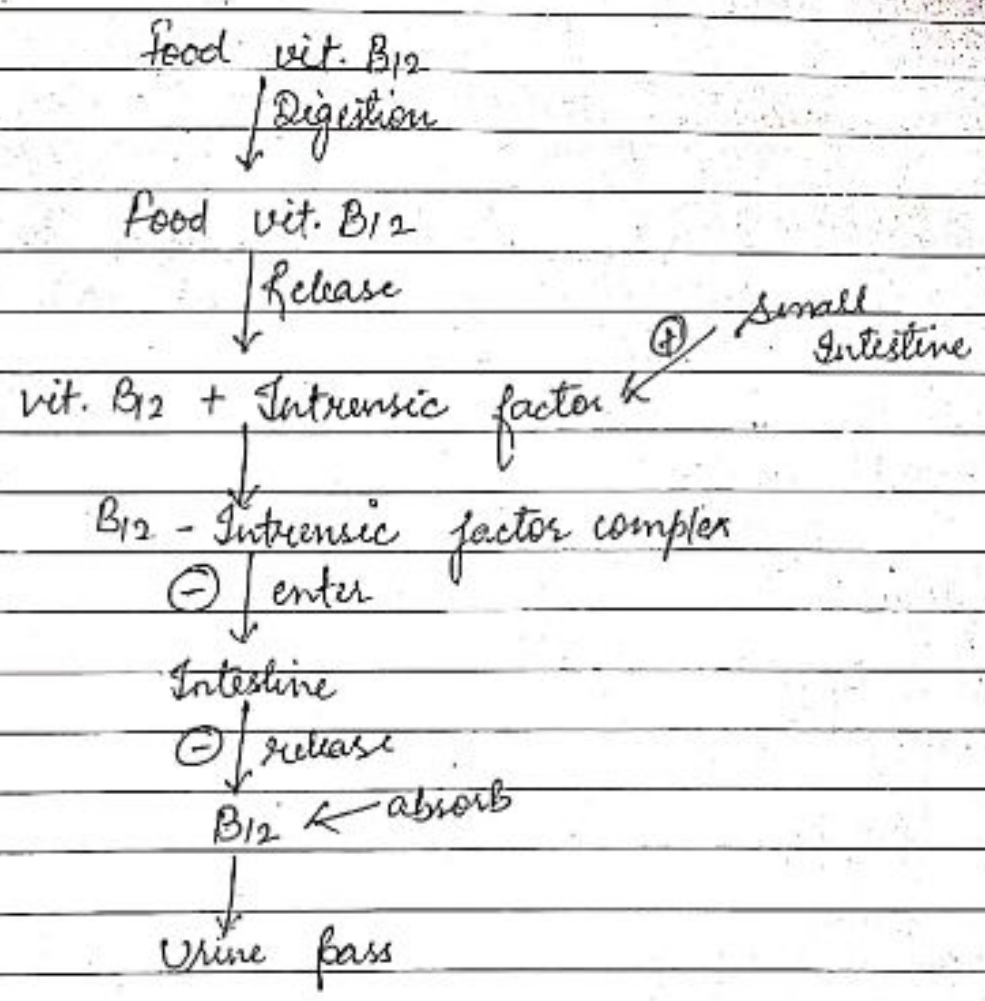 food vit. B12
Digestion
food vit. B12
Release
small
Intestine
+
vit. B12 + Intrensic factor
B12 - Intrensic factor complex
- enter
Intestine
- release
B12 ← absorb
Urine pass